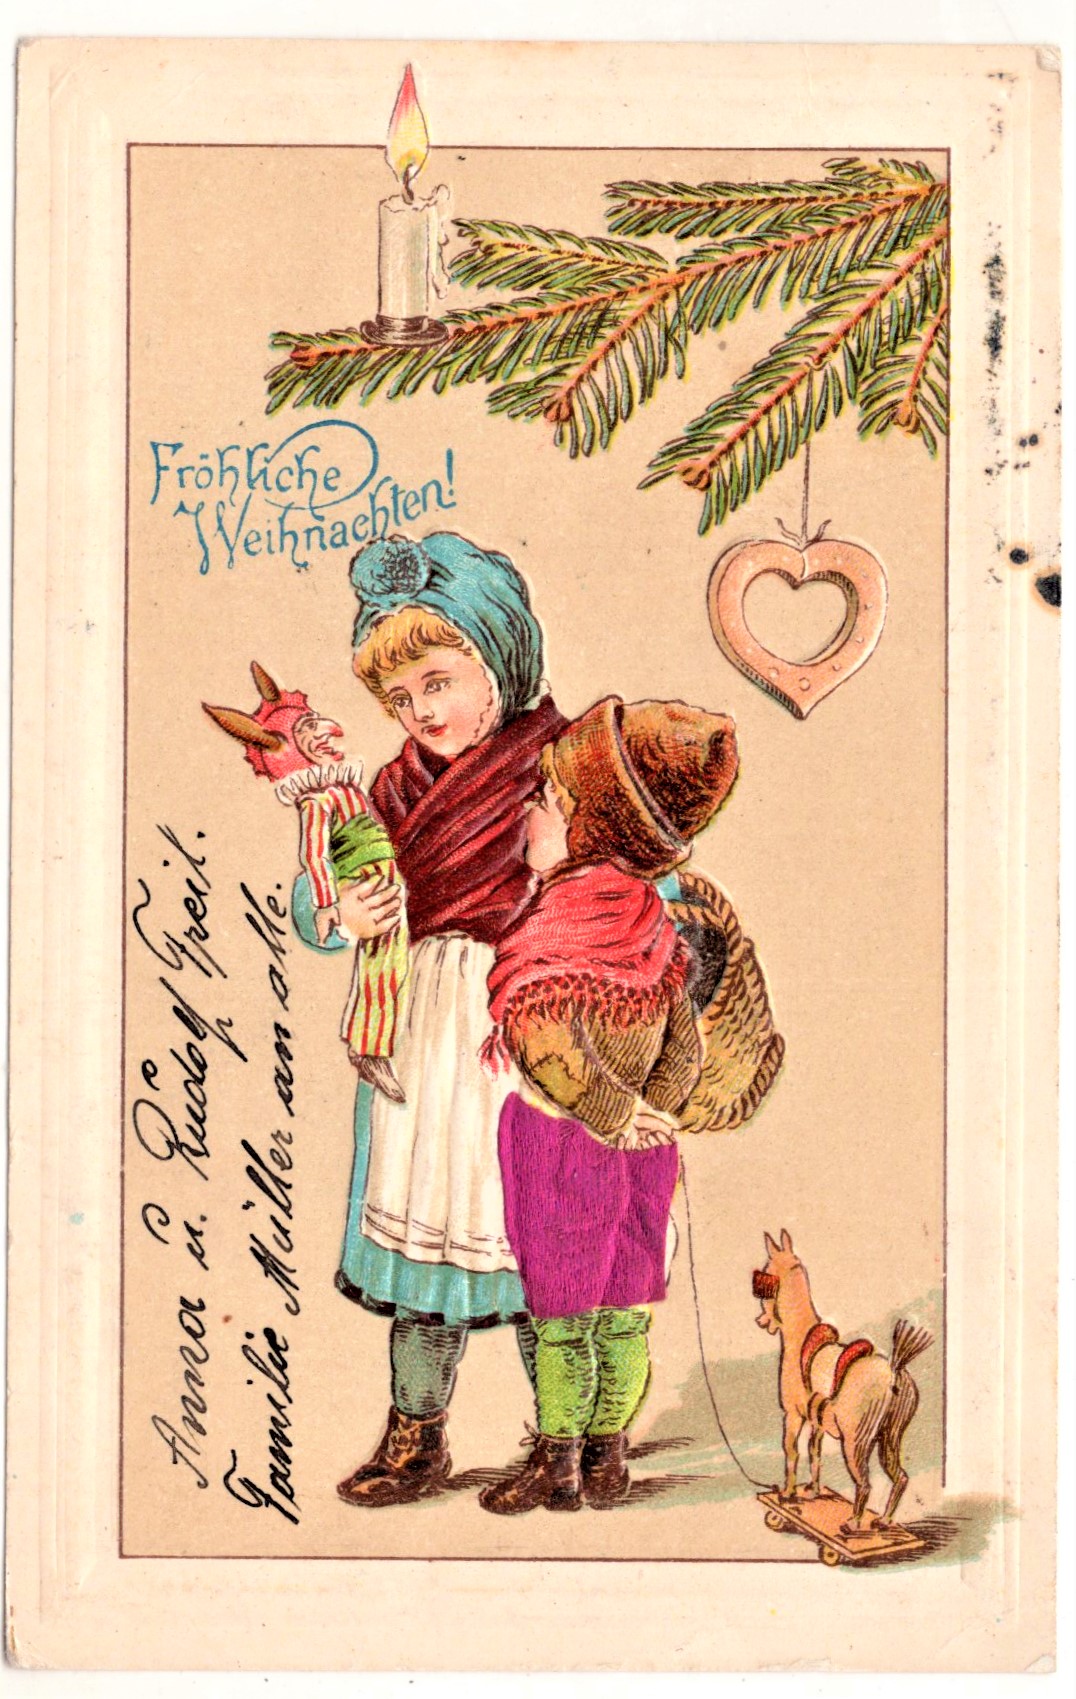 Fröhliche
Weihnachten!
Anna u. Rudolf Freil.
Familie Müller an alle.